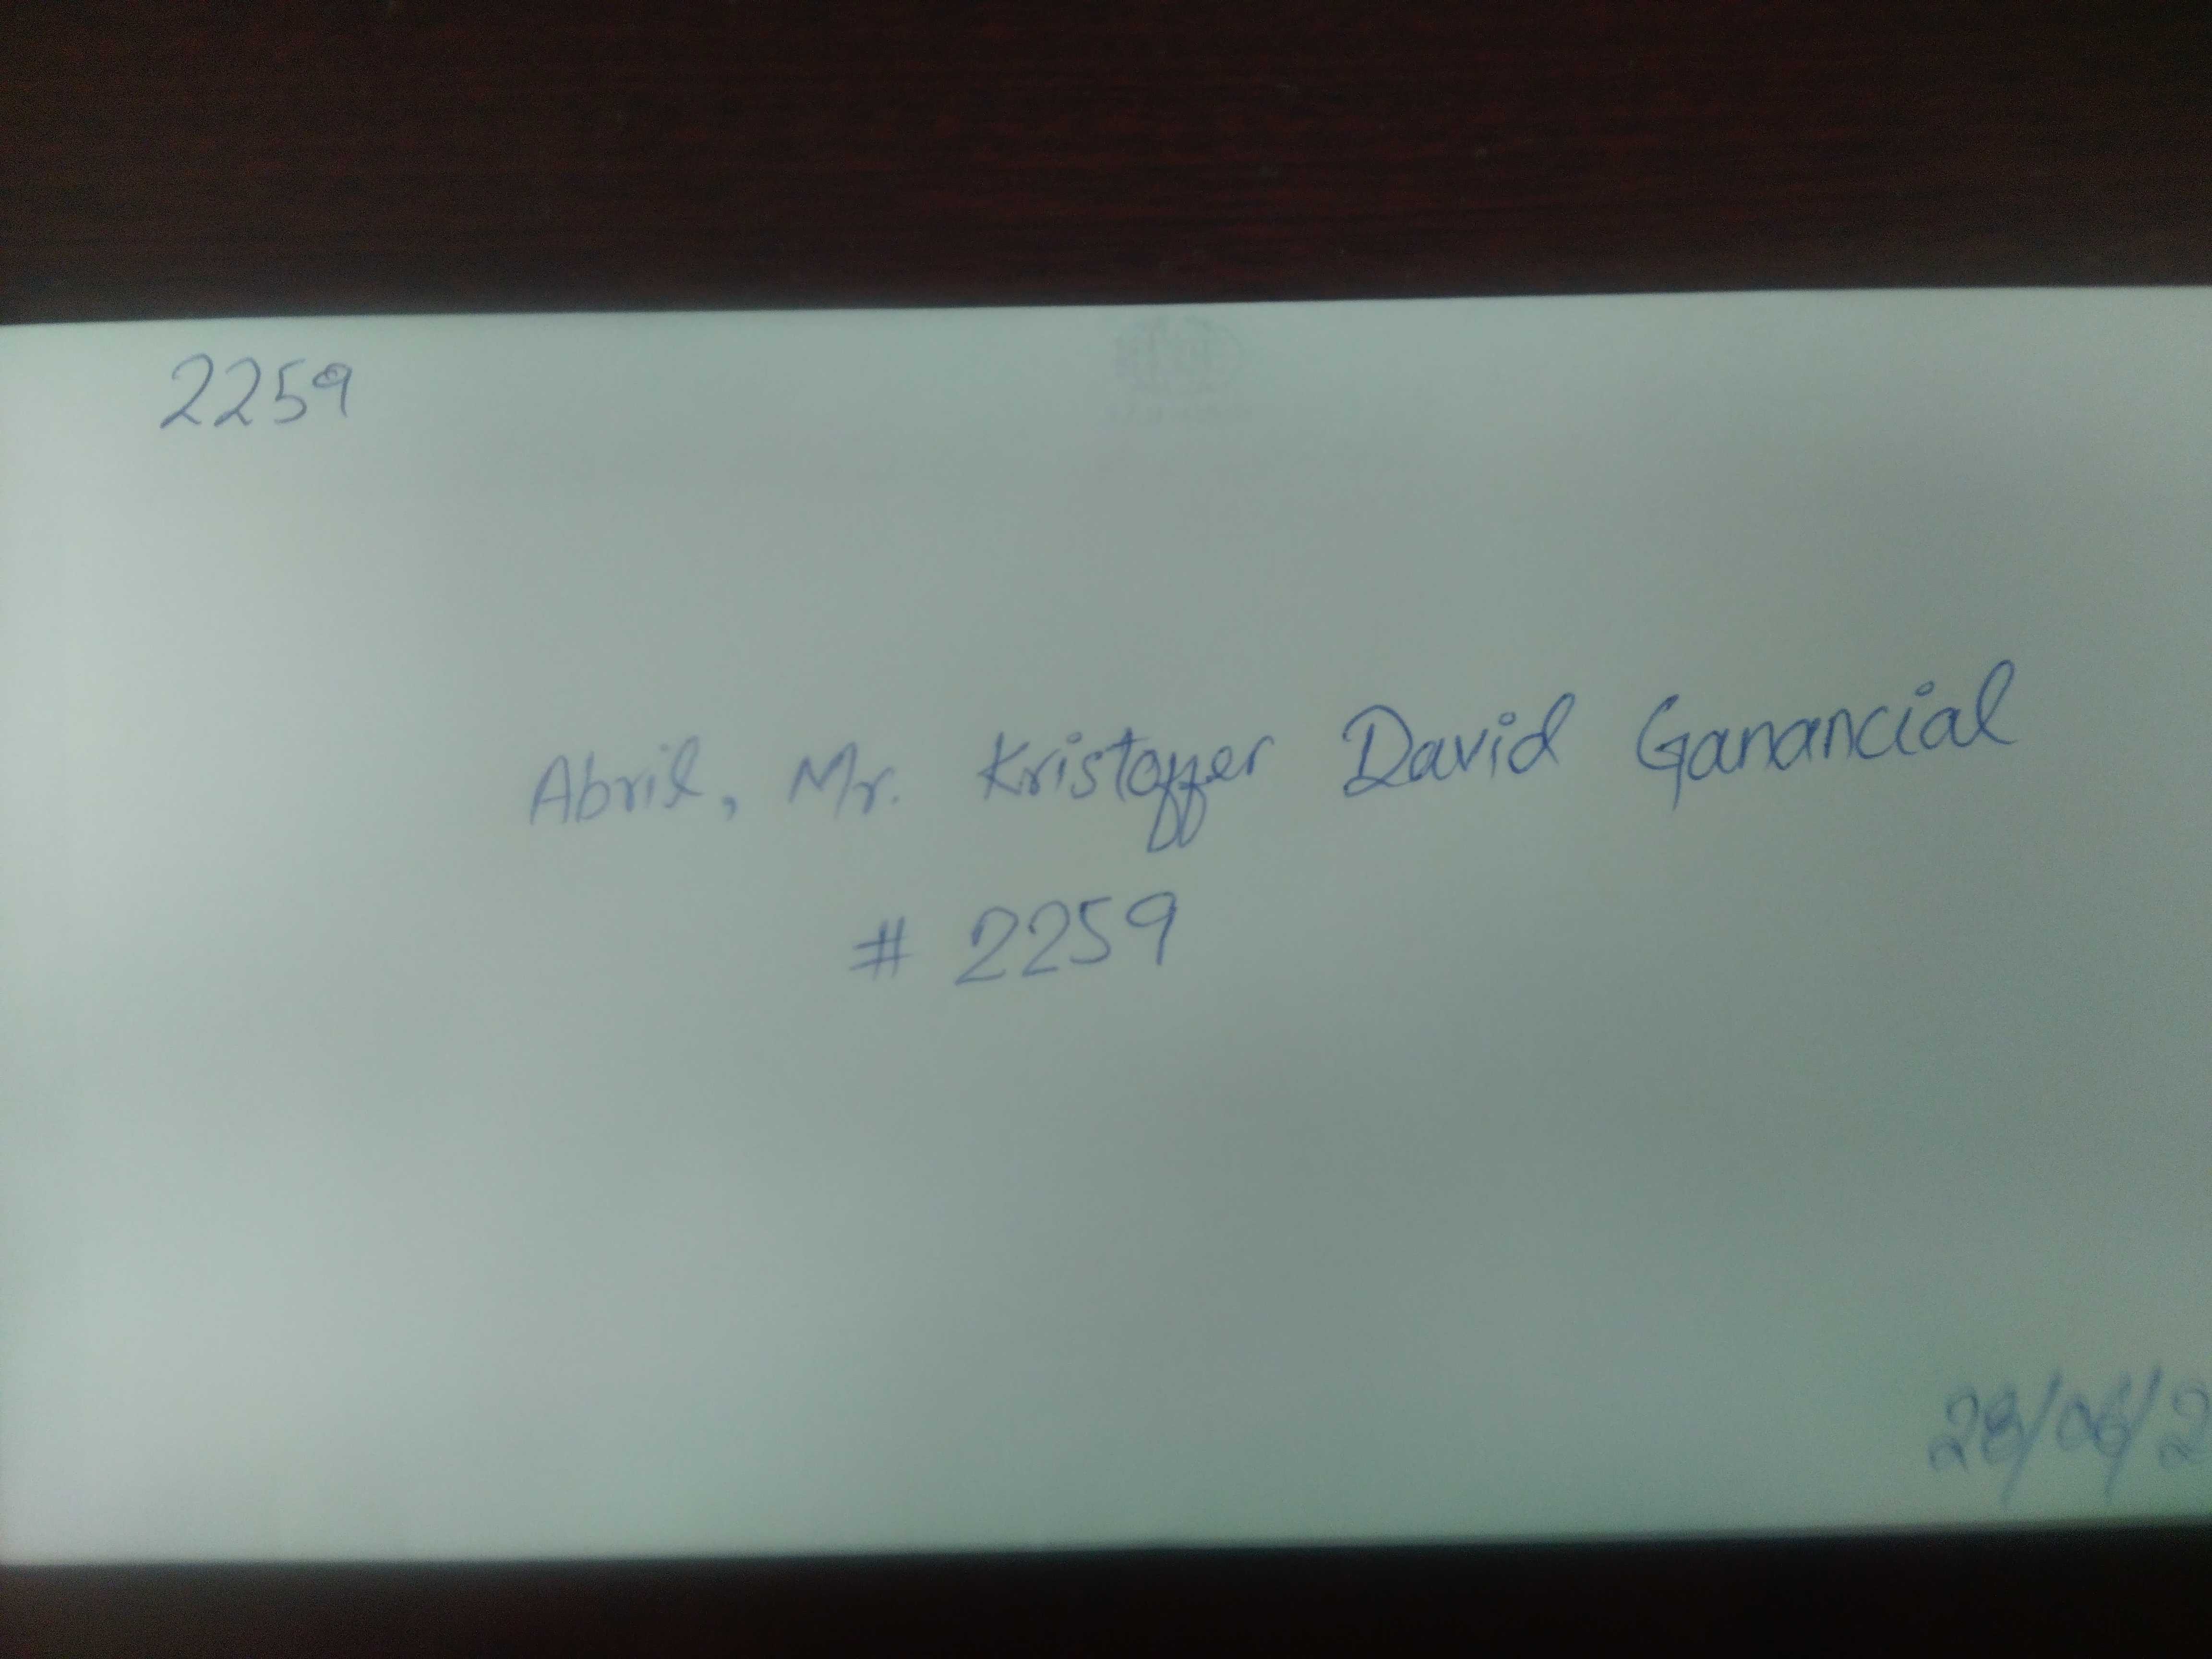 2259
Abril, Mr. Kristoffer David Ganancial
# 2259
28/06/2